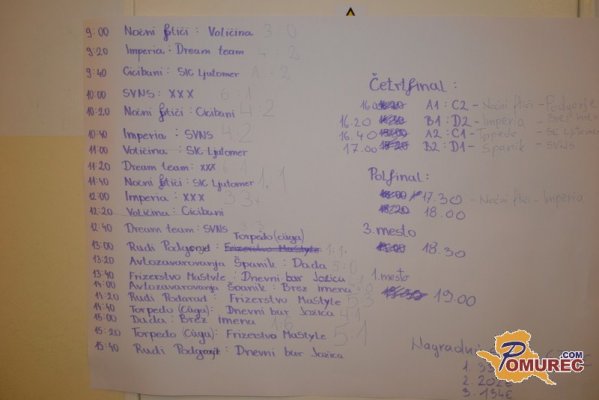 9:00 Nočni ptiči : Voličina 3:0
9:20 Imperia : Dream team 2
9:40 Cicibani : SIC Ljutomer 1:2
10:00 SVNS : XXX 6:1
10:20 Nočni ptiči : Cicibani 4:2
10:40 Imperia : SVNS 4:2
11:00 Voličina : SIC Ljutomer
11:20 Dream team : XXX
11:40 Nočni ptiči : SIC Ljutomer 1:1
12:00 Imperia : XXX
12:20 Voličina : Cicibani
12:40 Dream team : SVNS
Torpedo (Caga)
13:00 Rudi Podgrajt : Frizerstvo MaStyle 1:1
13:20 Avtozavarovanja Španik : Dada 5:0
13:40 Frizerstvo MaStyle : Dnevni bar Jožica
14:00 Avtozavarovanja Španik : Brez imena
14:20 Rudi : Frizerstvo MaStyle 5:3
14:40 Torpedo (Caga) : Dnevni bar Jožica 4:1
15:00 Dada : Brez imena 1:6
15:20 Torpedo (Caga) : Frizerstvo MaStyle 5:1
15:40 Rudi Podgrajt : Dnevni bar Jožica
Četrtfinal :
A1 : C2 - Nočni ptiči -
16.20 B1 : D2 - Imperia -
16.40 A2 : C1 - Torpedo - SIC Ljutomer
17.00 B2 : D1 - Španik - SVNS
Polfinal :
17.30 - Nočni ptiči - Imperia
18.00
3. mesto
18.30
1. mesto
19.00
Nagradni
1.
2. 202€
3. 134€
POMUREC.COM